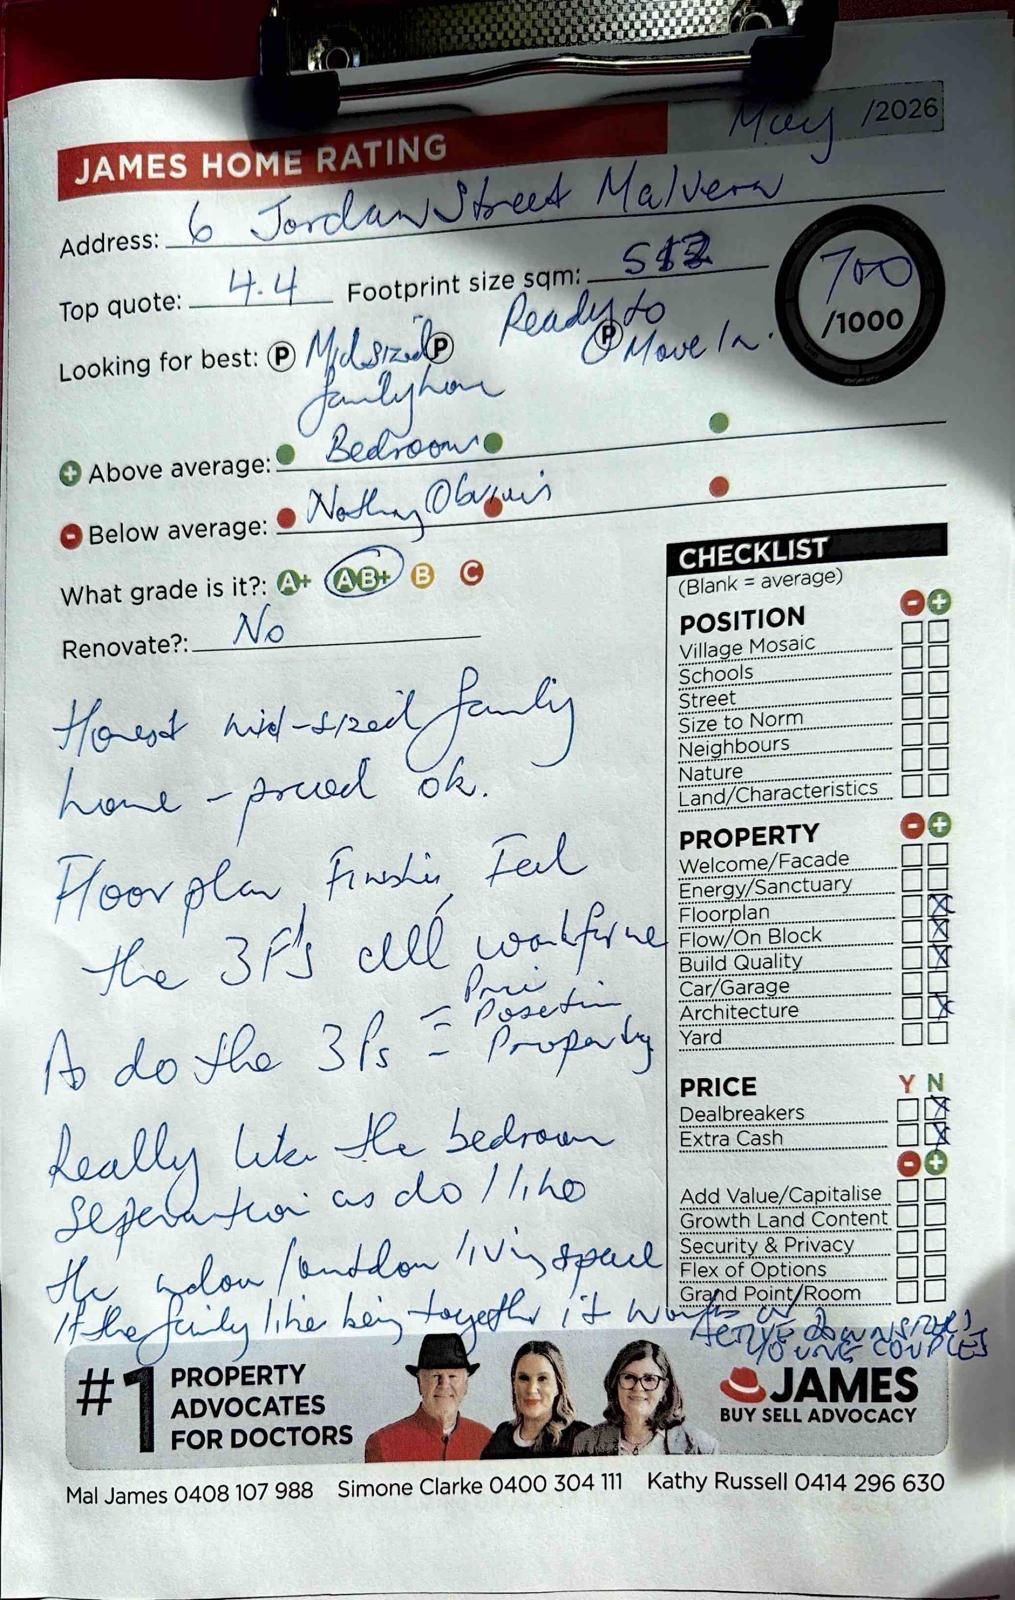 May /2026
JAMES HOME RATING
Address: 6 Jordan Street Malvern
Top quote: 4.4 Footprint size sqm:
700
/1000
Looking for best: P Mid sized P Ready to P Move In.
family home
+ Above average: Bedrooms
- Below average: Nothing Obvious
What grade is it?: A+ AB+ B C
Renovate?: No
Honest mid-sized family
home - priced ok.
Floorplan, Finishes, Feel
the 3F's all work fine
As do the 3Ps = Price
= Position
- Property
Really like the bedroom
seperation as do I like
the indow/outdow living space
If the family like being together it works or
ACTIVE DOWNSIZERS
YOUNG COUPLES
CHECKLIST
(Blank = average)
POSITION - +
Village Mosaic
Schools
Street
Size to Norm
Neighbours
Nature
Land/Characteristics
PROPERTY - +
Welcome/Facade
Energy/Sanctuary
Floorplan
Flow/On Block
Build Quality
Car/Garage
Architecture
Yard
PRICE Y N
Dealbreakers
Extra Cash
- +
Add Value/Capitalise
Growth Land Content
Security & Privacy
Flex of Options
Grand Point/Room
#1 PROPERTY
ADVOCATES
FOR DOCTORS
JAMES
BUY SELL ADVOCACY
Mal James 0408 107 988 Simone Clarke 0400 304 111 Kathy Russell 0414 296 630